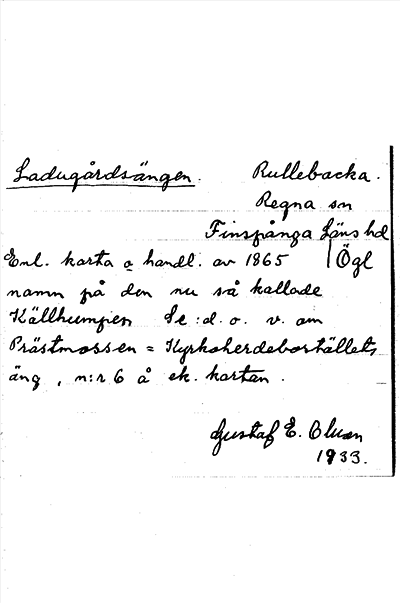 Ladugårdsängen. Rullebacka.
Regna sn
Finspånga läns hd
Enl. karta o handl. av 1865 Ögl
namn på den nu så kallade
Källhumpen Se :d. o. v. om
Prästmossen = Kyrkoherdebortällets
äng, n:r 6 å ek. kartan.
Gustaf E.
1933.